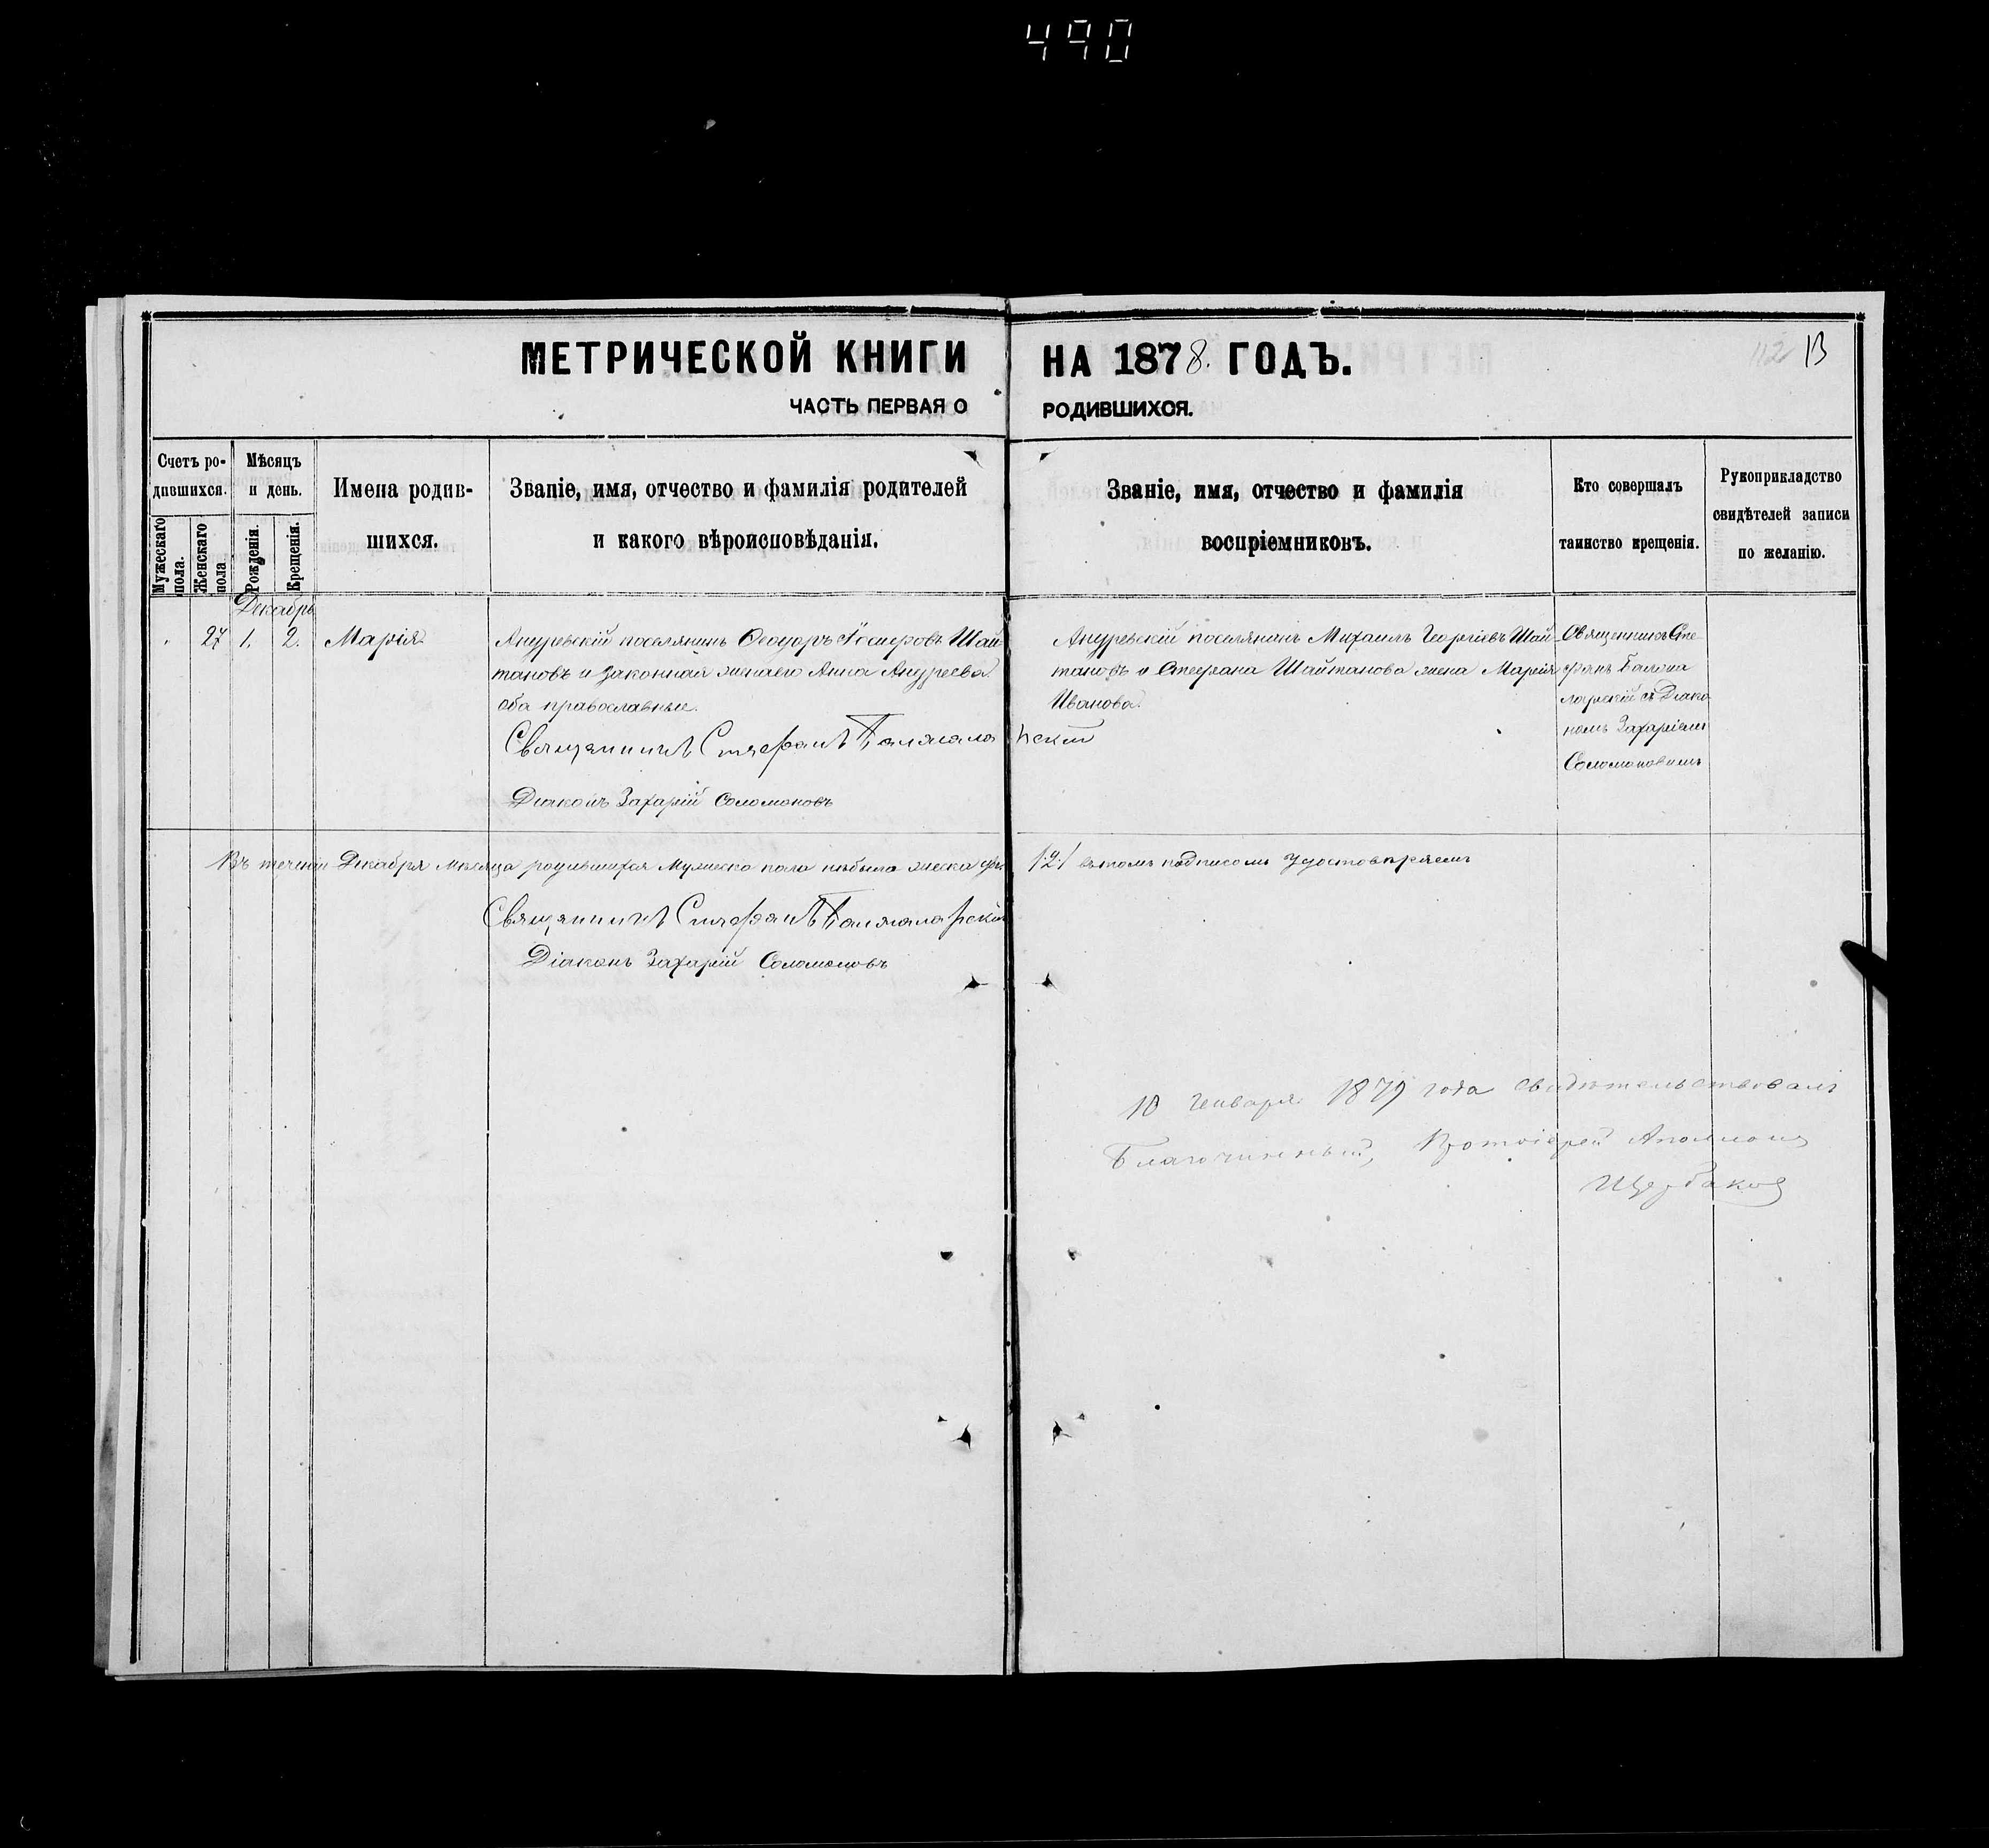 490
МЕТРИЧЕСКОЙ КНИГИ НА 1878. ГОДЪ.
112 13
ЧАСТЬ ПЕРВАЯ О РОДИВШИХСЯ.
Счетъ родившихся.
Мужескаго пола.
Женскаго пола
Мѣсяцъ и день.
Рожденія.
Крещенія.
Имена родив-
шихся.
Званіе, имя, отчество и фамилія родителей
и какого вѣроисповѣданія.
Званіе, имя, отчество и фамилія
воспріемниковъ.
Кто совершалъ
таинство крещенія.
Рукоприкладство
свидѣтелей записи
по желанію.
Декабрь
27 1. 2. Марія
поселянинъ Ѳеодоръ Шай
тановъ и законная жена его Анна Андреева
оба православные.
Священникъ Стефанъ
Діаконъ Захарій Соломоновъ
поселянинъ Михаилъ Георгіевъ Шай-
тановъ и Стефана Шайтанова жена Марія
Иванова.
Священникъ Сте-
фанъ
съ Діако
номъ Захаріемъ
Соломоновымъ
Въ теченіи Декабря Мѣсяца родившихся Мужеско пола небыло женска /:1:/ вътомъ подписомъ удостовѣряемъ
Священникъ Стефанъ
Діаконъ Захарій Соломоновъ
10 Генваря 1879 года свидѣтельствовалъ
Благочинный, Протоіерей
Щербаковъ